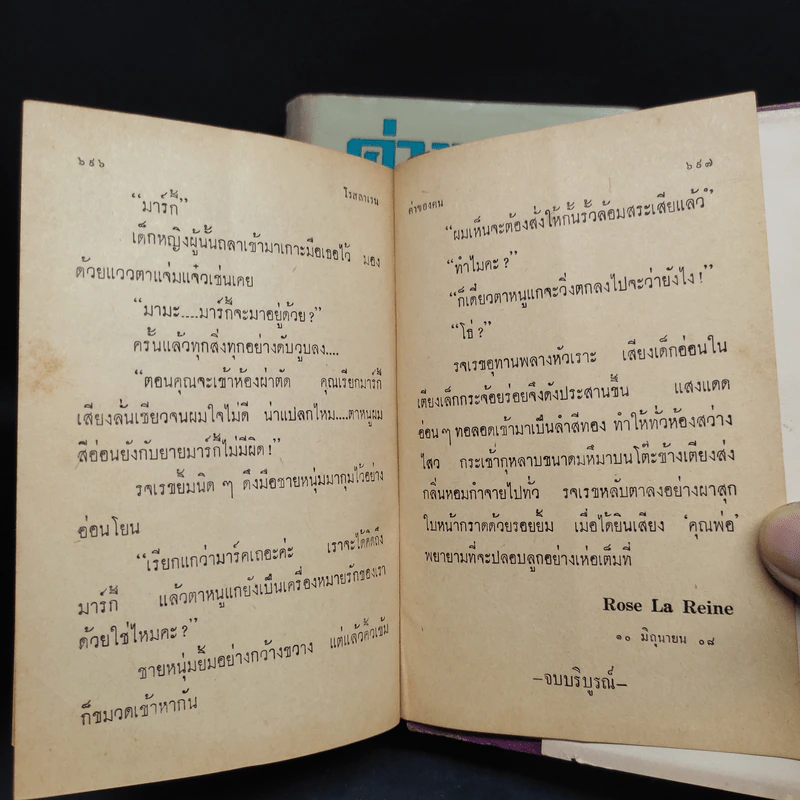 ค่า
๖๙๖
โรสลาเรน
“มาร์กี้”
เด็กหญิงผู้นั้นถลาเข้ามาเกาะมือเธอไว้ มอง
ด้วยแววตาแจ่มแจ๋วเช่นเคย
“มามะ....มาร์กี้จะมาอยู่ด้วย?”
ครั้นแล้วทุกสิ่งทุกอย่างดับวูบลง....
“ตอนคุณจะเข้าห้องผ่าตัด คุณเรียกมาร์กี้
เสียงลั่นเชียวจนผมใจไม่ดี น่าแปลกไหม....ตาหนูผม
สีอ่อนยังกับยายมาร์กี้ไม่มีผิด!”
รจเรขยิ้มนิด ๆ ดึงมือชายหนุ่มมากุมไว้อย่าง
อ่อนโยน
“เรียกแกว่ามาร์คเถอะค่ะ เราจะได้คิดถึง
มาร์กี้ แล้วตาหนูแกยังเป็นเครื่องหมายรักของเรา
ด้วยใช่ไหมคะ?”
ชายหนุ่มยิ้มอย่างกว้างขวาง แต่แล้วคิ้วเข้ม
ก็ขมวดเข้าหากัน
๖๙๗
ค่าของคน
“ผมเห็นจะต้องสั่งให้กั้นรั้วล้อมสระเสียแล้ว”
“ทำไมคะ?”
“ก็เดี๋ยวตาหนูแกจะวิ่งตกลงไปจะว่ายังไง!”
“โธ่?”
รจเรขอุทานพลางหัวเราะ เสียงเด็กอ่อนใน
เตียงเล็กกระจ้อยร่อยจึงดังประสานขึ้น แสงแดด
อ่อน ๆ ทอลอดเข้ามาเป็นลำสีทอง ทำให้ทั่วห้องสว่าง
ไสว กระเช้ากุหลาบขนาดมหึมาบนโต๊ะข้างเตียงส่ง
กลิ่นหอมกำจายไปทั่ว รจเรขหลับตาลงอย่างผาสุก
ใบหน้ากราดด้วยรอยยิ้ม เมื่อได้ยินเสียง ‘คุณพ่อ’
พยายามที่จะปลอบลูกอย่างเห่อเต็มที่
Rose La Reine
๑๐ มิถุนายน ๐๘
—จบบริบูรณ์—